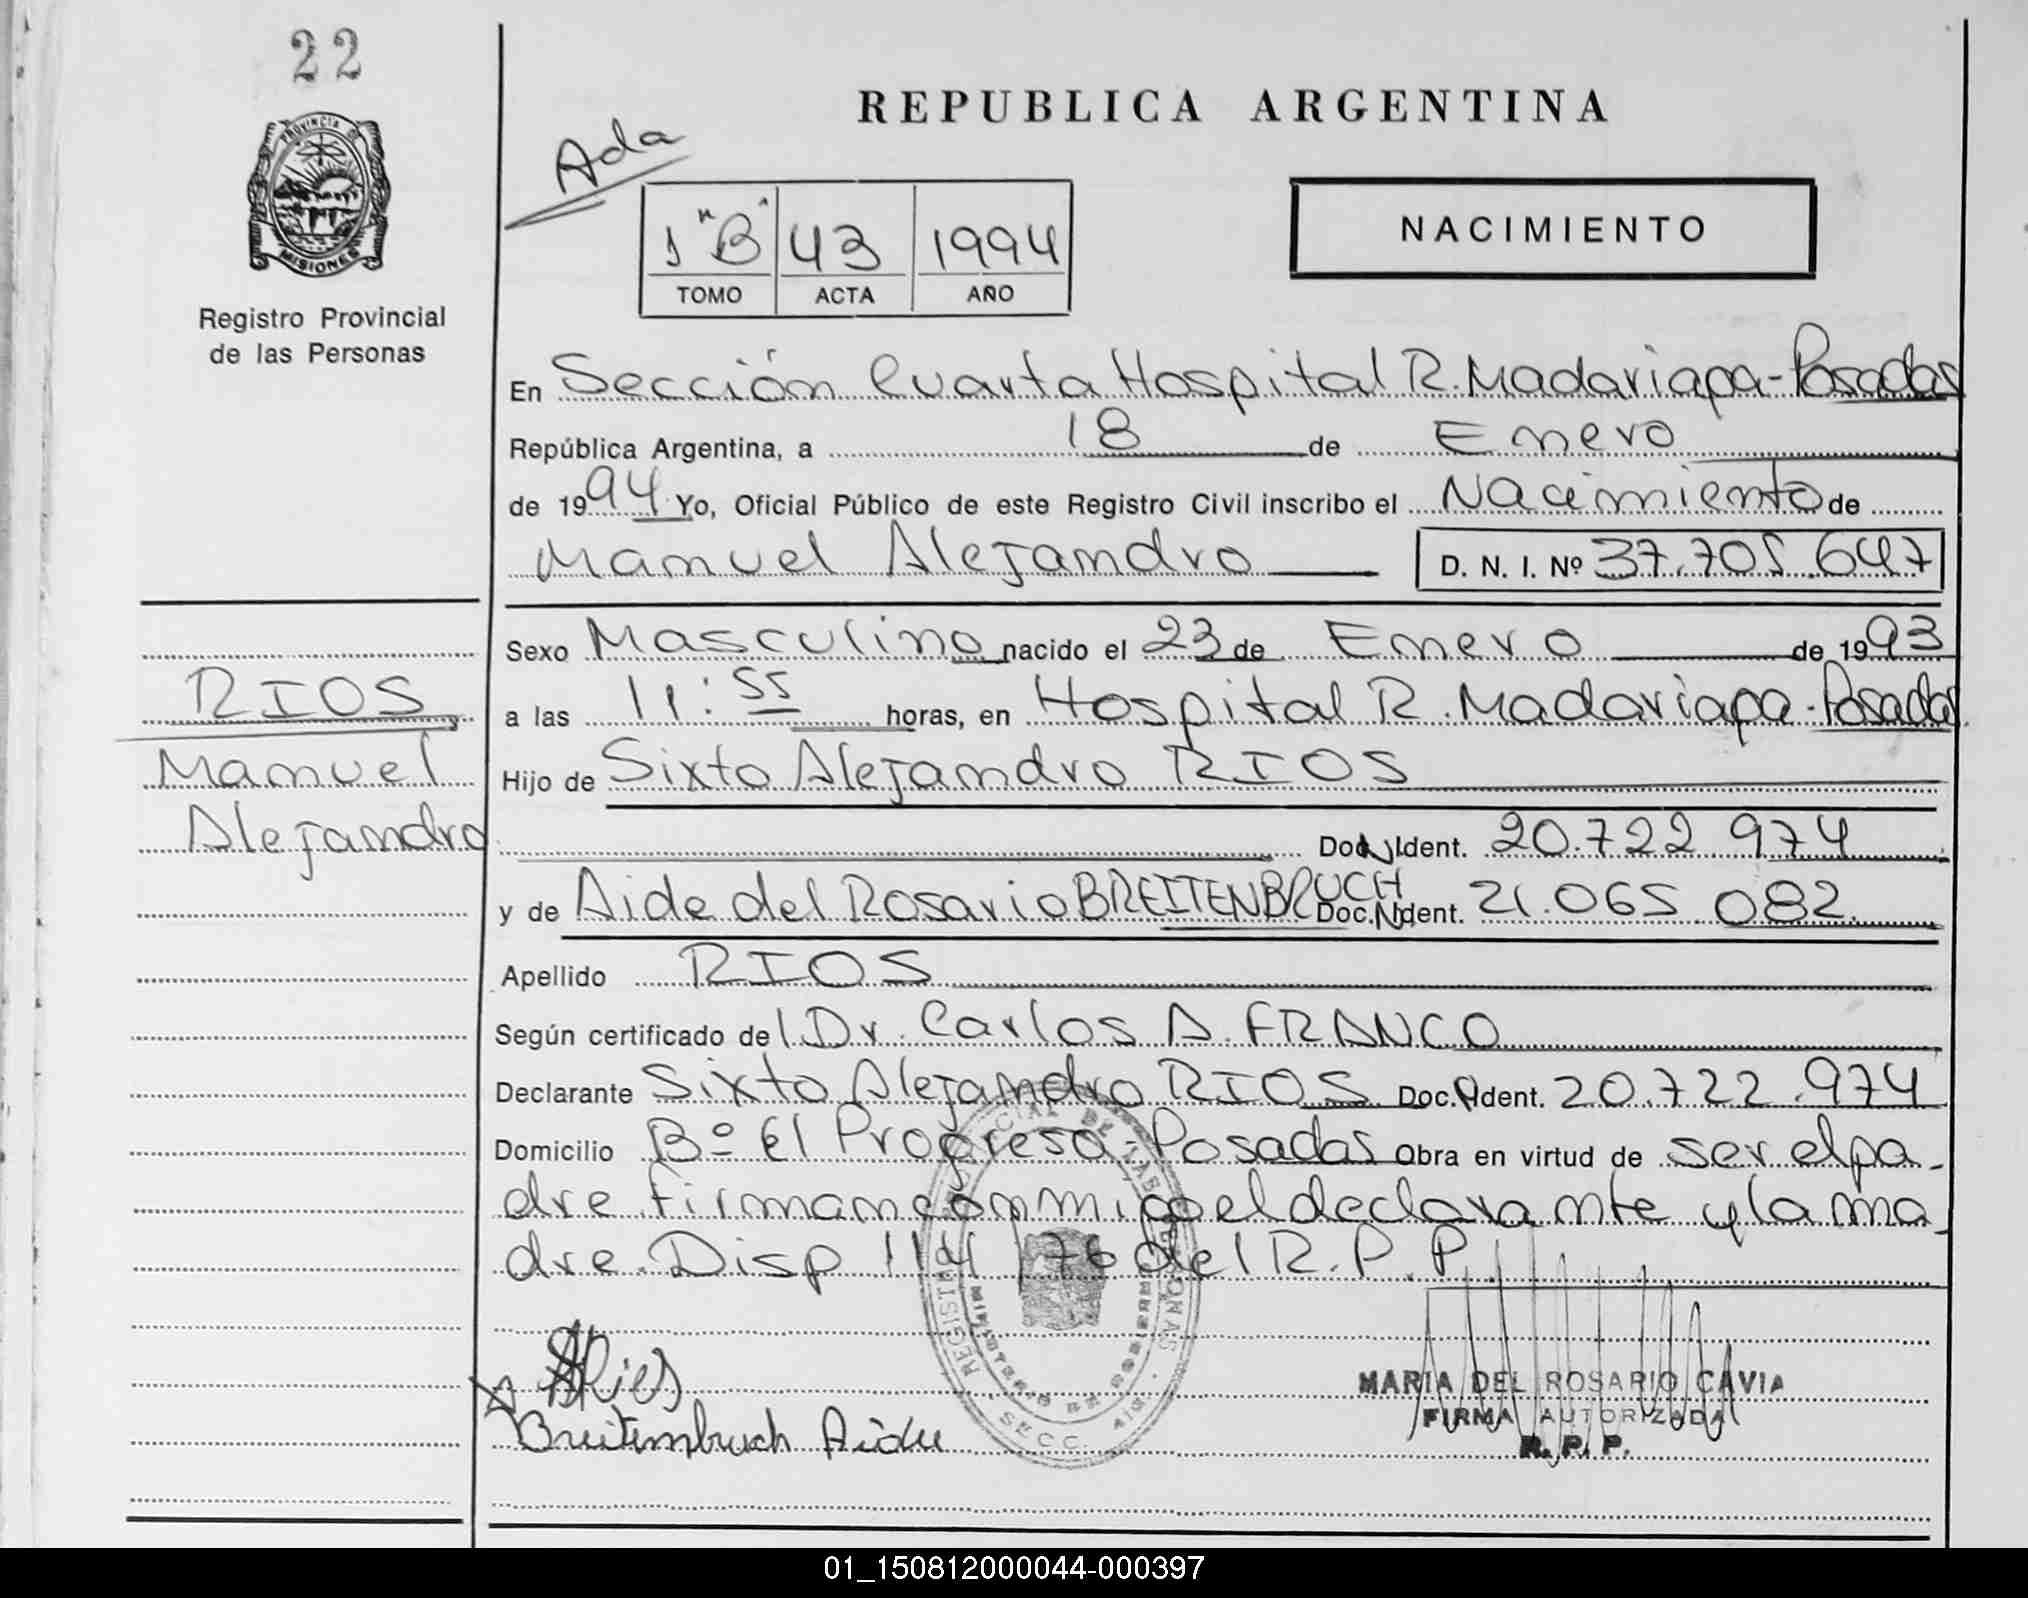 22
REPUBLICA ARGENTINA
Ada
PROVINCIA DE
MISIONES
1 "B" 43 1994
TOMO ACTA AÑO
NACIMIENTO
Registro Provincial
de las Personas
En Sección Cuarta Hospital R. Madariaga-Posadas
República Argentina, a 18 de Enero
de 1994 Yo, Oficial Público de este Registro Civil inscribo el Nacimiento de
Manuel Alejandro D. N. I. Nº 37.705.647
Sexo Masculino nacido el 23 de Enero de 1993
RIOS
a las 11:55 horas, en Hospital R. Madariaga-Posadas
Manuel
Hijo de Sixto Alejandro RIOS
Alejandro
Doc. Ident. 20.722.974
y de Aide del Rosario BREITENBRUCH Doc. Ident. 21.065.082
Apellido RIOS
Según certificado del Dr. Carlos A. FRANCO
Declarante Sixto Alejandro RIOS Doc. Ident. 20.722.974
Domicilio Bº El Progreso-Posadas Obra en virtud de ser el pa-
dre firman conmigo el declarante y la ma-
dre. Disp 114/76 del R.P.P.
MARIA DEL ROSARIO CAVIA
FIRMA AUTORIZADA
R. P. P.
Breitembruch Aide
01_150812000044-000397